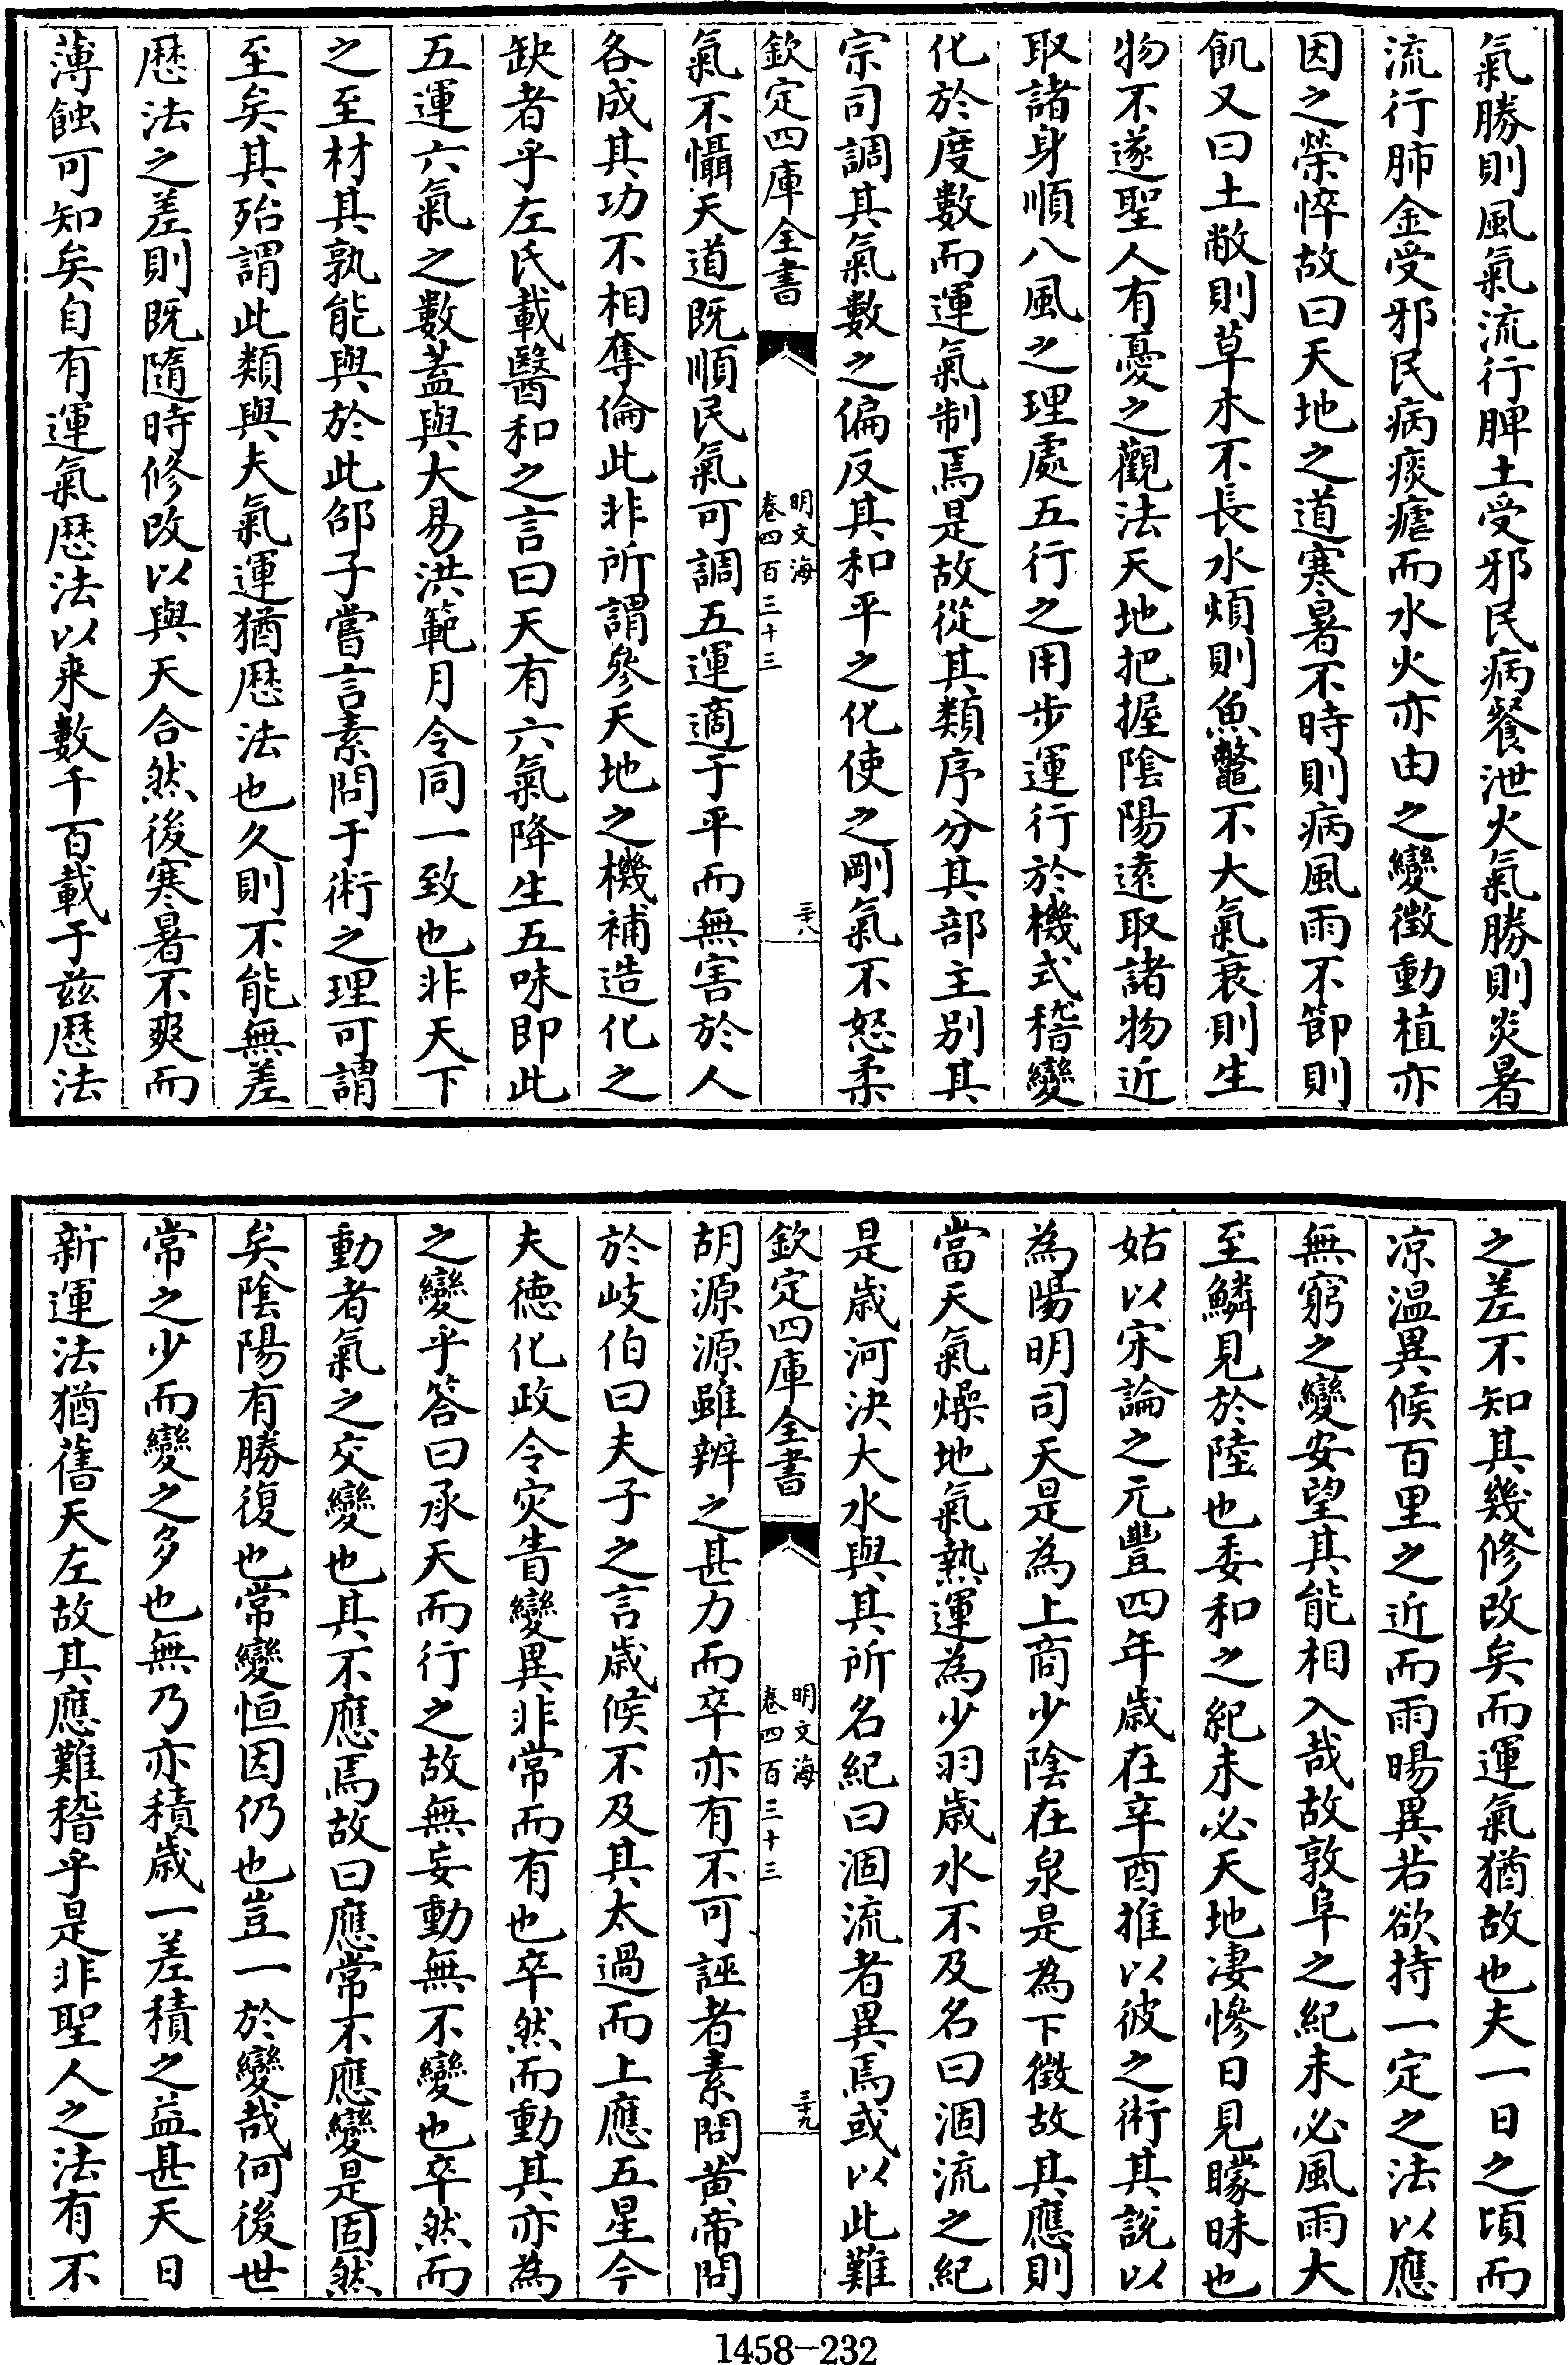 氣勝則風氣流行脾土受邪民病餐泄火氣勝則炎暑
流行肺金受邪民病痰瘧而水火亦由之變徴動植亦
因之榮悴故曰天地之道寒暑不時則病風雨不節則
飢又曰土敝則草木不長水煩則魚鼈不大氣衰則生
物不遂聖人有憂之觀法天地把握陰陽遠取諸物近
取諸身順八風之理處五行之用步運行於機式稽變
化於度數而運氣制焉是故從其類序分其部主别其
宗司調其氣數之偏反其和平之化使之剛氣不怒柔
欽定四庫全書
明文海
卷四百三十三
三十八
氣不懾天道既順民氣可調五運適于平而無害於人
各成其功不相奪倫此非所謂參天地之機補造化之
缺者乎左氏載醫和之言曰天有六氣降生五味即此
五運六氣之數蓋與大易洪範月令同一致也非天下
之至材其孰能與於此邵子嘗言素問于術之理可謂
至矣其殆謂此類與夫氣運猶厯法也久則不能無差
厯法之差則既隨時修改以與天合然後寒暑不爽而
薄蝕可知矣自有運氣厯法以来數千百載于兹厯法
之差不知其幾修改矣而運氣猶故也夫一日之頃而
凉温異候百里之近而雨暘異若欲持一定之法以應
無窮之變安望其能相入哉故敦阜之紀未必風雨大
至鱗見於陸也委和之紀未必天地凄慘日見矇昧也
姑以宋論之元豐四年歳在辛酉推以彼之術其説以
為陽明司天是為上商少陰在泉是為下徴故其應則
當天氣燥地氣熱運為少羽歳水不及名曰涸流之紀
是歳河決大水與其所名紀曰涸流者異焉或以此難
欽定四庫全書
明文海
卷四百三十三
三十九
胡源源雖辨之甚力而卒亦有不可誣者素問黄帝問
於岐伯曰夫子之言歳候不及其太過而上應五星今
夫德化政令灾眚變異非常而有也卒然而動其亦為
之變乎答曰承天而行之故無妄動無不變也卒然而
動者氣之交變也其不應焉故曰應常不應變是固然
矣陰陽有勝復也常變恒因仍也豈一於變哉何後世
常之少而變之多也無乃亦積歳一差積之益甚天日
新運法猶舊天左故其應難稽乎是非聖人之法有不
1458-232